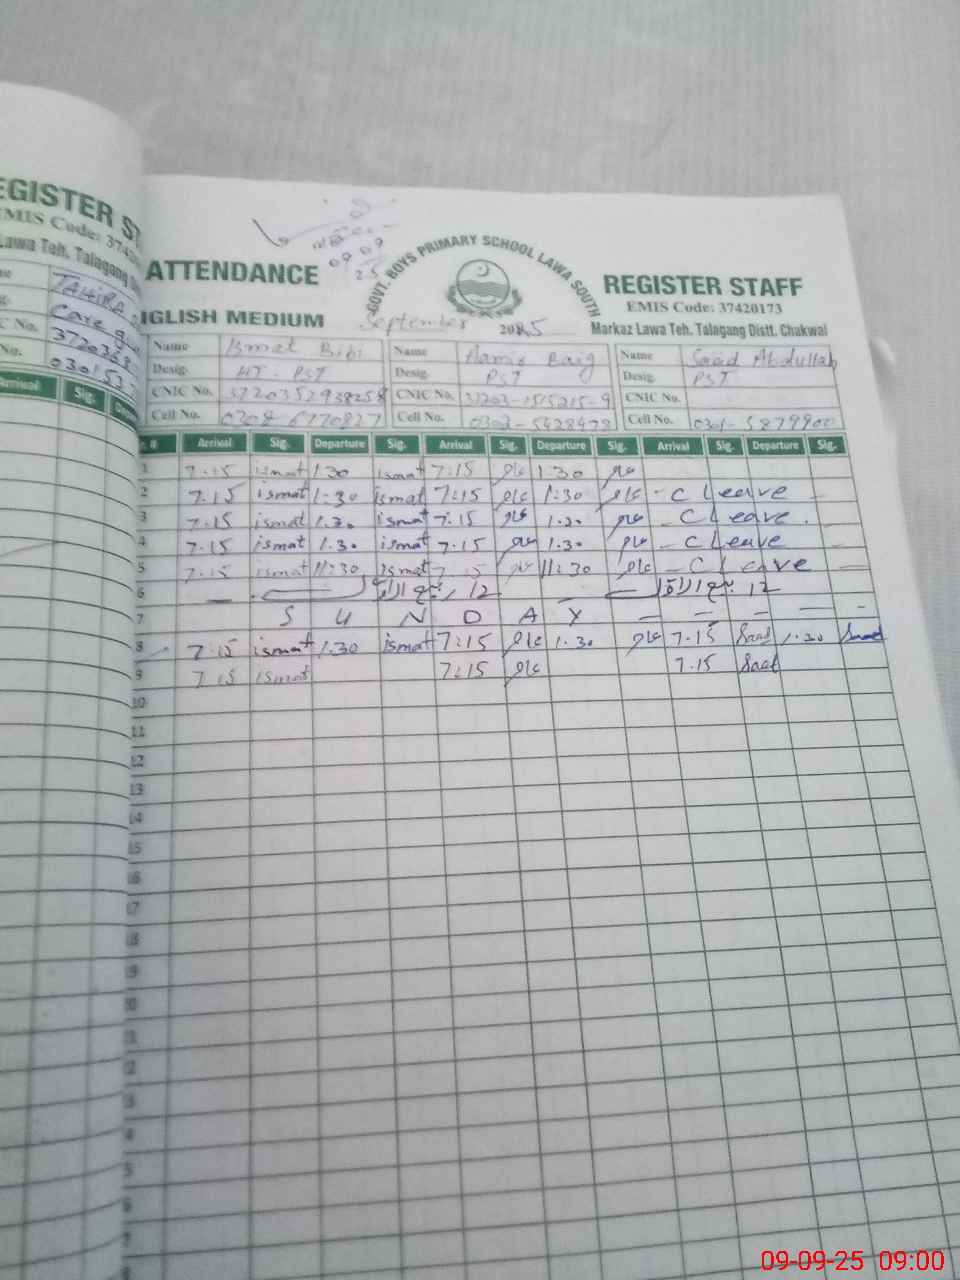 EGISTER ST
EMIS Code: 37420
Lawa Teh. Talagang
TAHIRA
Care
0301
Arrival Sig.
09 09
25
GOVT. BOYS PRIMARY SCHOOL LAWA SOUTH
ATTENDANCE REGISTER STAFF
EMIS Code: 37420173
NGLISH MEDIUM September 2025 Markaz Lawa Teh. Talagang Distt. Chakwal
Name Ismat Bibi Name Aamir Baig Name Saad Abdullah
Desig. HT - PST Desig. PST Desig. PST
CNIC No. 3720352938258 CNIC No. 37203-1515215-9 CNIC No.
Cell No. 0308-6770827 Cell No. 0302-5428478 Cell No. 0301-5879900
Arrival Sig. Departure Sig. Arrival Sig. Departure Sig. Arrival Sig. Departure Sig.
1 7.15 ismat 1.30 ismat 7:15 عامر 1:30 عامر
2 7.15 ismat 1.30 ismat 7:15 عامر 1:30 عامر - C Leave -
3 7.15 ismat 1.30 ismat 7.15 عامر 1.30 عامر - C Leave .
4 7.15 ismat 1.30 ismat 7.15 عامر 1.30 عامر - C Leave -
5 7.15 ismat 11:30 ismat 7.15 عامر 11:30 عامر - C Leave -
6 — 12 ربیع الاول — 12 ربیع الاول
7 S U N D A Y — — — — -
8 7.15 ismat 1.30 ismat 7:15 عامر 1.30 عامر 7.15 Saad 1.30 Saad
9 7.15 ismat 7:15 عامر 7.15 Saad
10
11
12
13
14
15
16
17
18
19
20
21
22
23
24
25
26
27
28
09-09-25 09:00